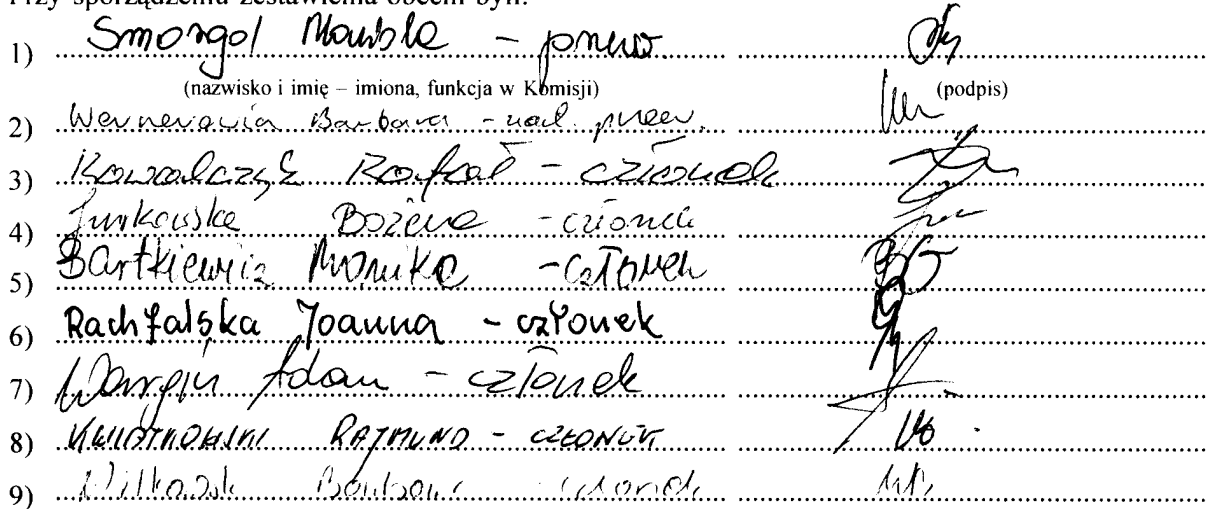 Przy sporządzeniu zestawienia obecni byli:
1) Smorgol - przew.
(nazwisko i imię – imiona, funkcja w Komisji) (podpis)
2) Barbara - zast. przew.
3) Kowalczyk Rafał - członek
4) Junkowska Bożena - członek
5) Bartkiewicz Monika - członek
6) Rachfalska Joanna - członek
7) Wargin Adam - członek
8) KWIATKOWSKI RAJMUND - CZŁONEK
9) Barbara - członek